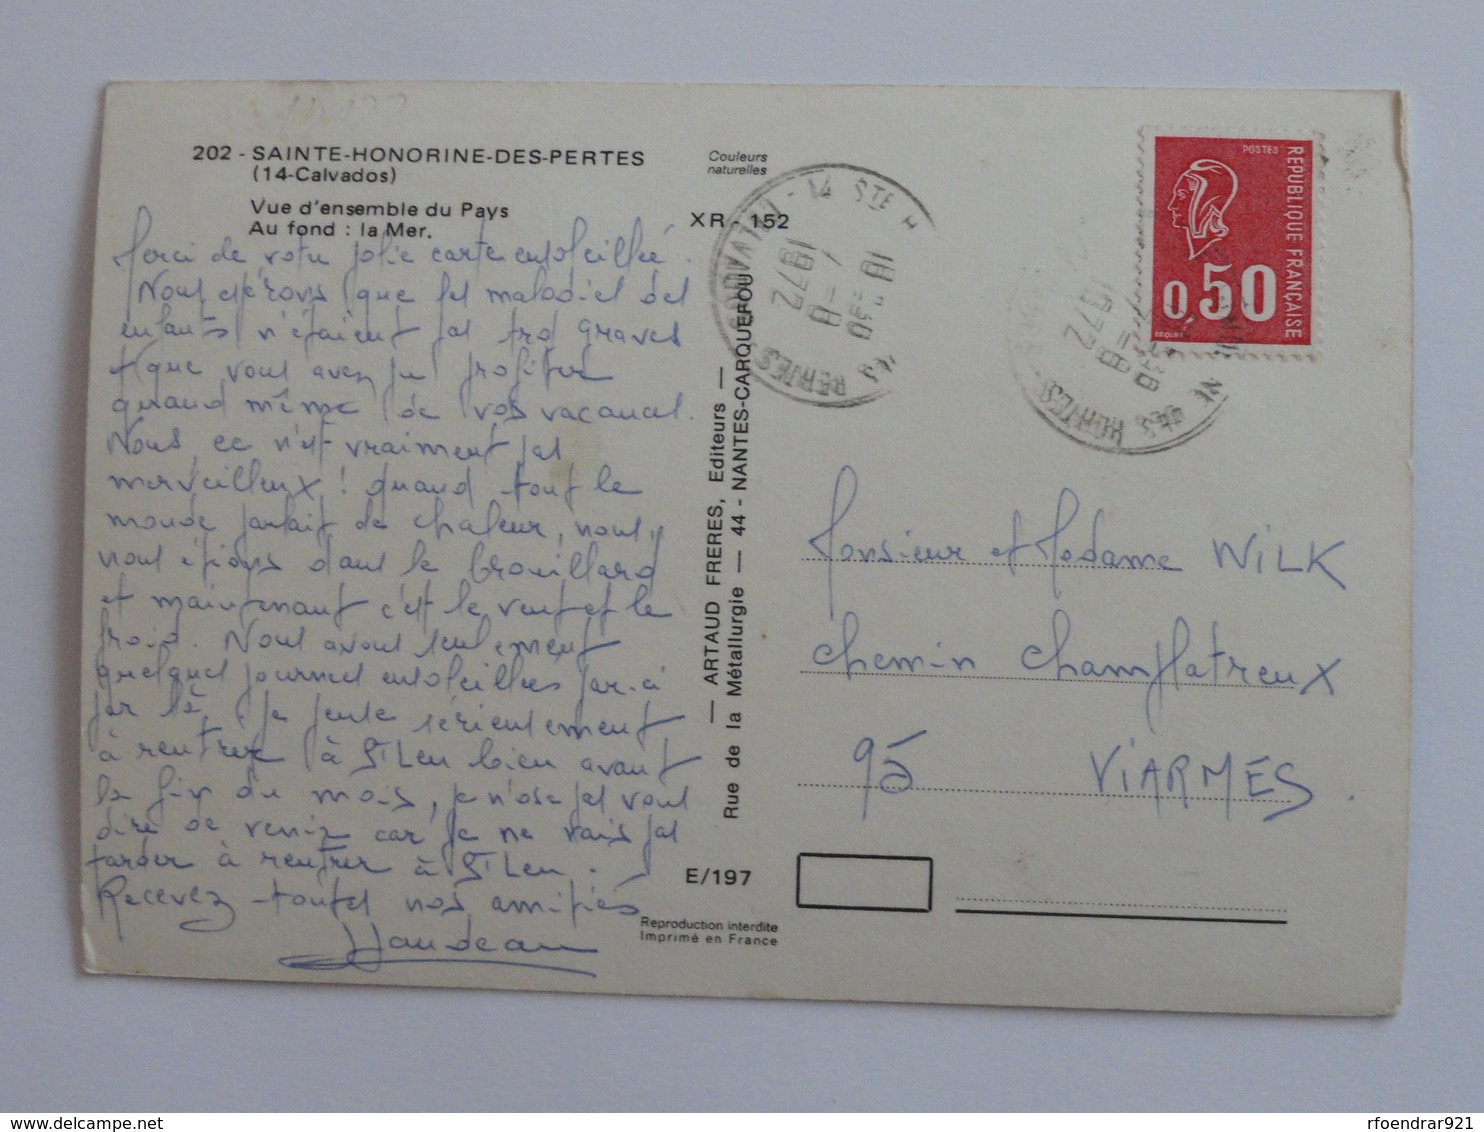 202 - SAINTE-HONORINE-DES-PERTES
(14-Calvados)
Vue d'ensemble du Pays
Au fond : la Mer.
Couleurs
naturelles
XR - 152
Merci de votre jolie carte ensoleillée.
Nous espérons que les maladies des
enfants n'étaient pas trop graves
et que vous avez pu profiter
quand même de vos vacances.
Nous ce n'est vraiment pas
merveilleux ! quand tout le
monde parlait de chaleur, nous,
nous étions dans le brouillard
et maintenant c'est le vent et le
froid. Nous avons seulement
quelques journées ensoleillées par-ci
par là, je pense sérieusement
à rentrer à St Leu bien avant
la fin du mois, je n'ose pas vous
dire de venir car je ne vais pas
tarder à rentrer à St Leu.
Recevez toutes nos amitiés
— ARTAUD FRERES, Editeurs —
Rue de la Métallurgie — 44 - NANTES-CARQUEFOU
E/197
Reproduction interdite
Imprimé en France
14 STE H
18 H 30
7 - 8
1972
CALVADOS
POSTES
REPUBLIQUE FRANÇAISE
0,50
BEQUET
1972
Monsieur et Madame WILK
chemin Champlatreux
95 VIARMES.
© www.delcampe.net
rfoendrar921